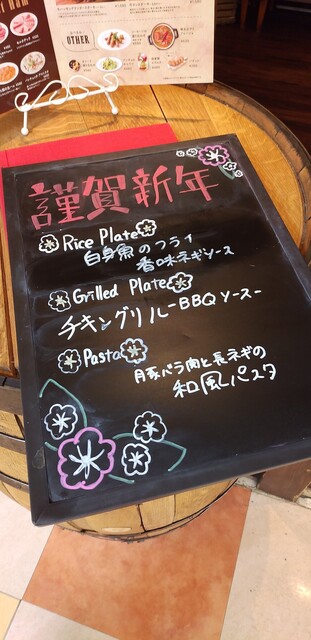 OTHER
謹賀新年
Rice Plate
白身魚のフライ
香味ネギソース
Grilled Plate
チキングリル-BBQソース-
Pasta
豚バラ肉と長ネギの
和風パスタ